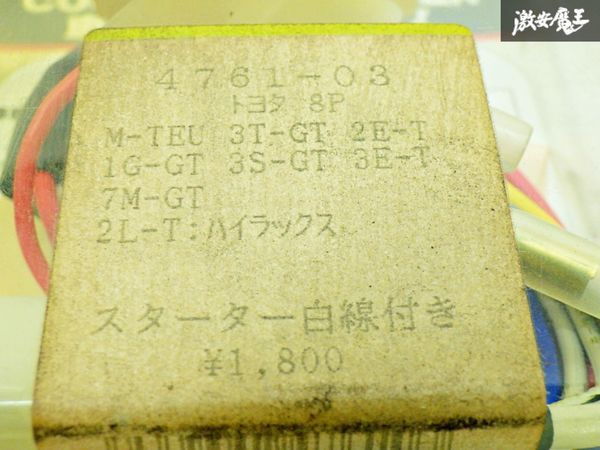 激安魔王
4761-03
トヨタ 8P
M-TEU 3T-GT 2E-T
1G-GT 3S-GT 3E-T
7M-GT
2L-T:ハイラックス
スターター白線付き
¥1,800